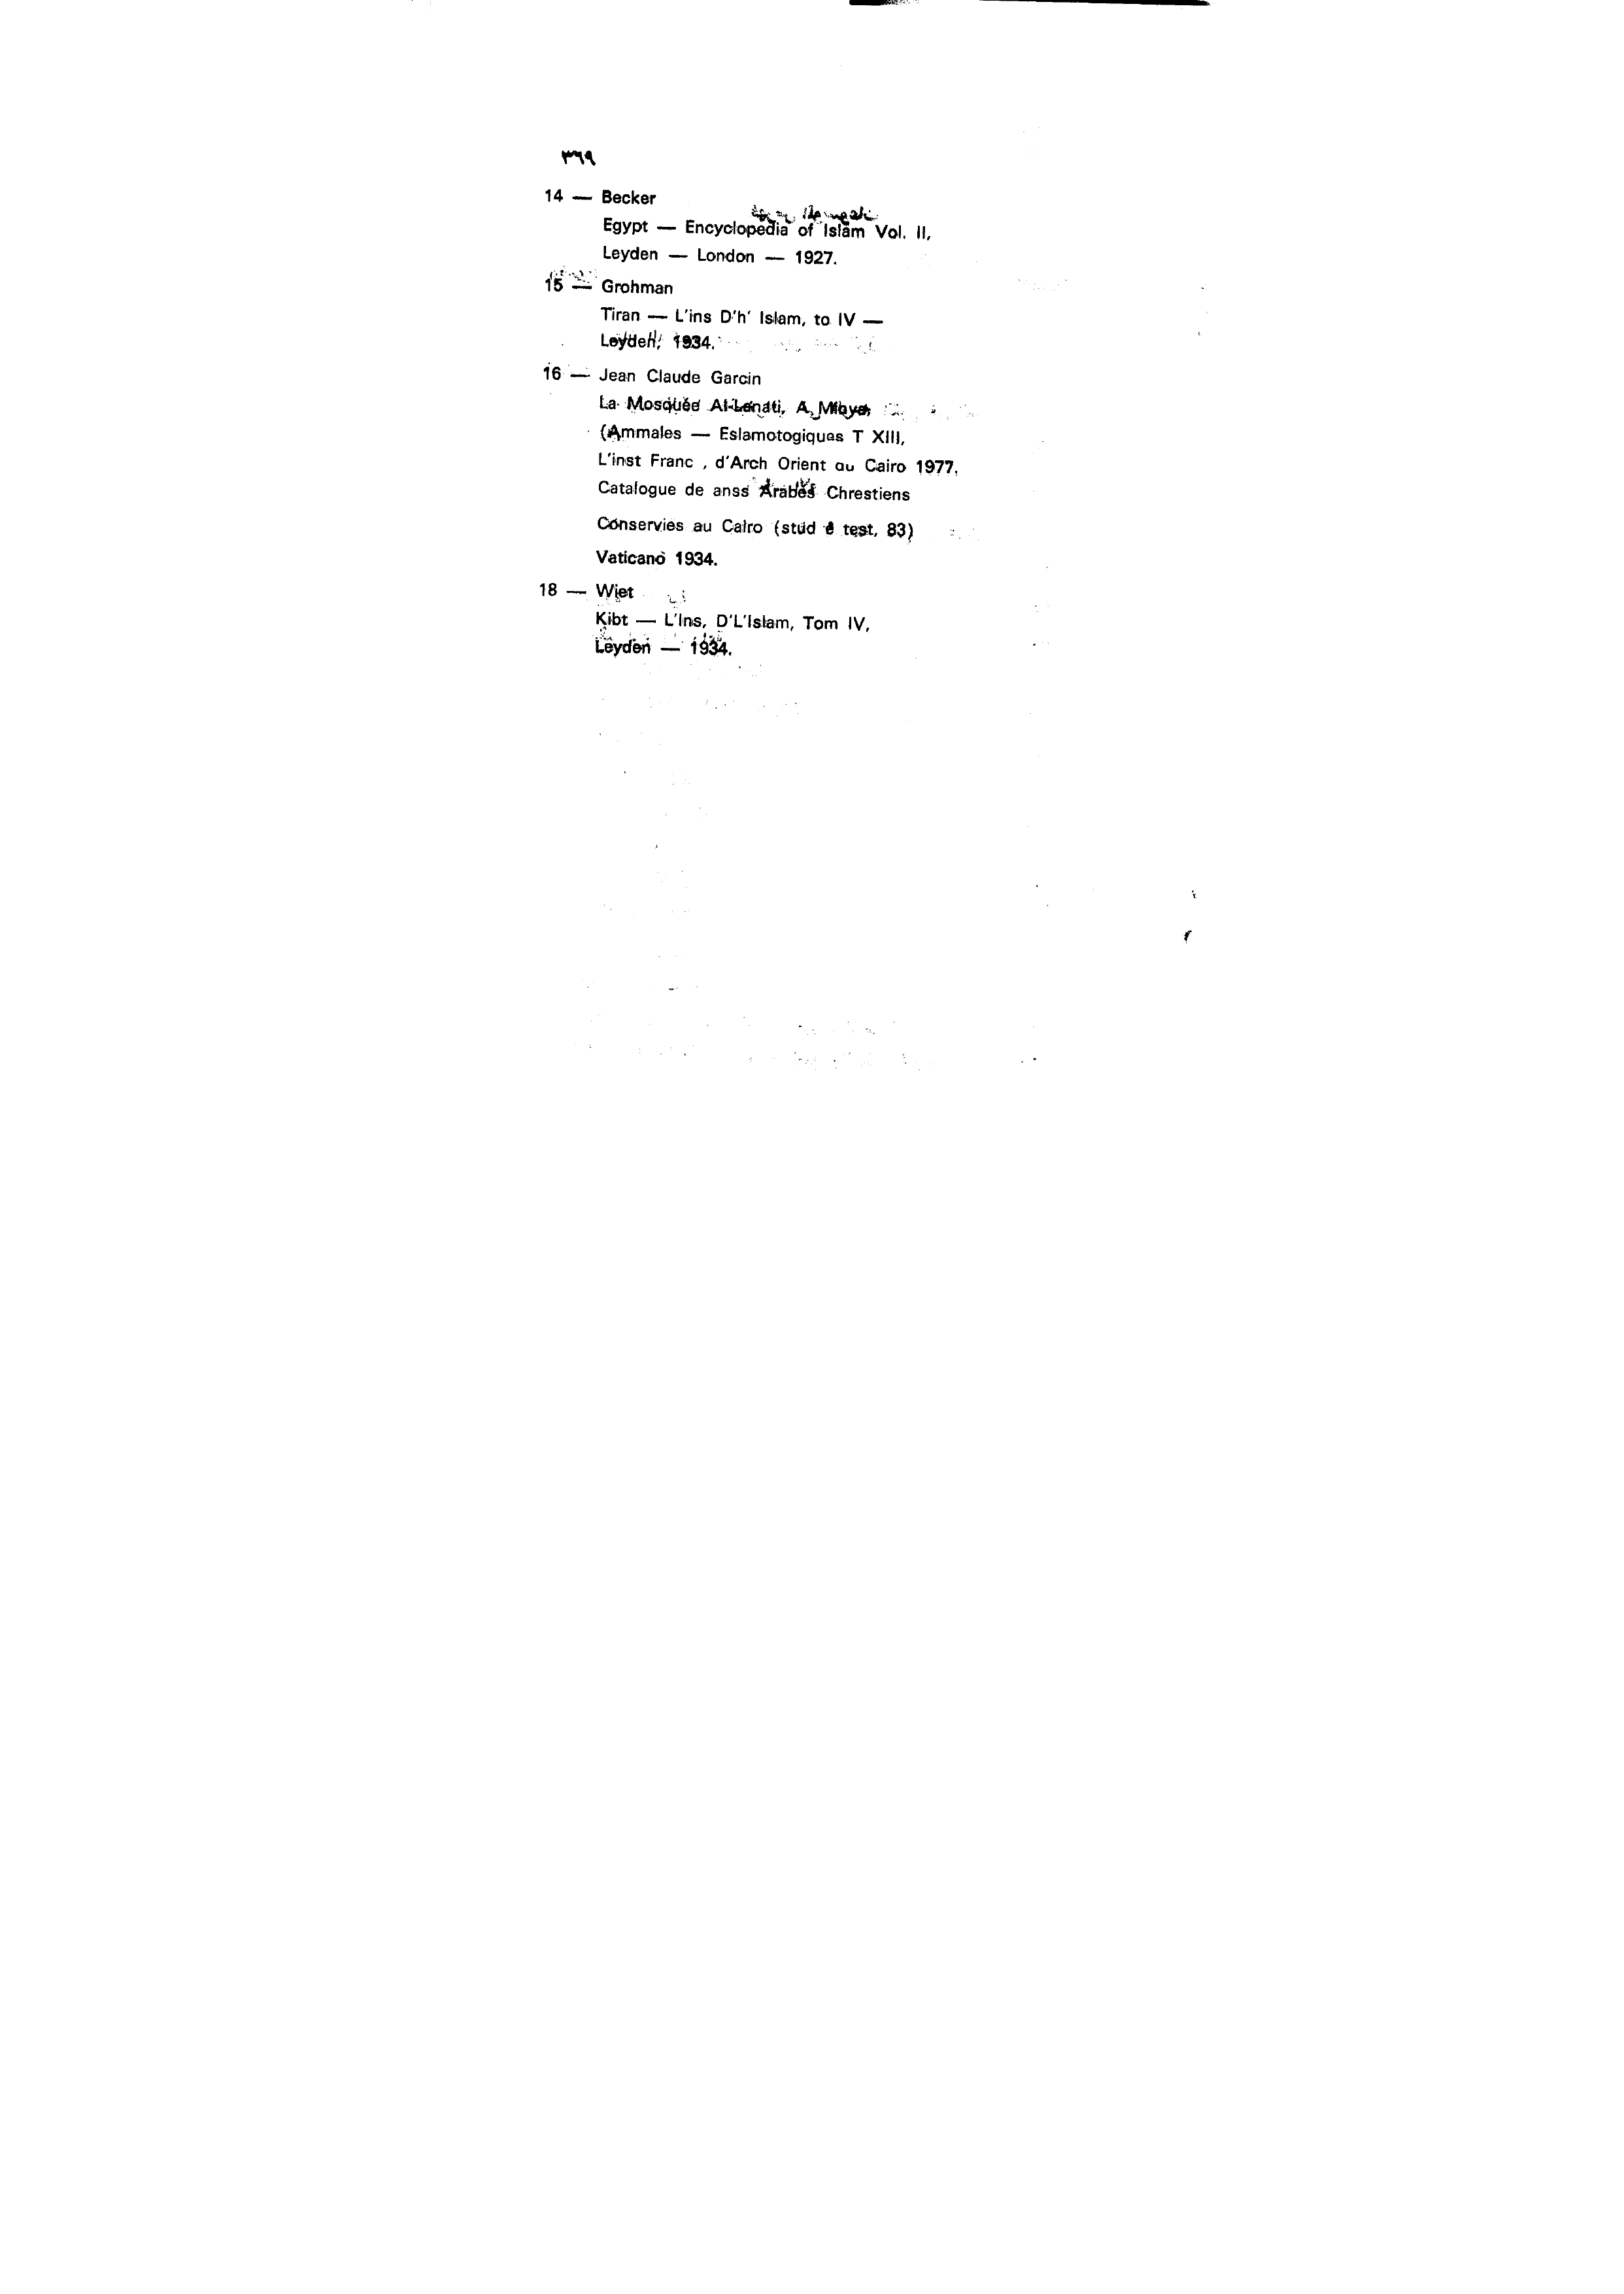 ٣٦٩
14 — Becker
Egypt — Encyclopedia of Islam Vol. II,
Leyden — London — 1927.
15 — Grohman
Tiran — L'ins D'h' Islam, to IV —
Leyden, 1934.
16 — Jean Claude Garcin
La Mosquée Al-Lamati, A,
(Ammales — Eslamotogiques T XIII,
L'inst Franc , d'Arch Orient au Cairo 1977.
Catalogue de anss Arabes Chrestiens
Conservies au Cairo (stud é test, 83)
Vaticano 1934.
18 — Wiet
Kibt — L'Ins, D'L'Islam, Tom IV,
Leyden — 1934.